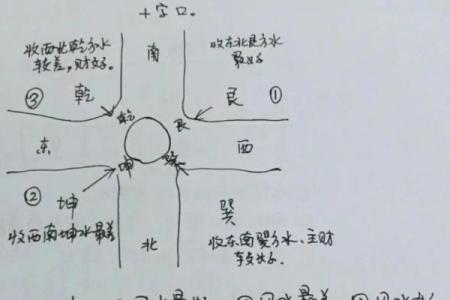 十字口。
南
收西北乾方水
较差,财好。
收东北艮方水
最好
③ 乾
艮 ①
乾
艮
东
西
坤
巽
②
坤
收西南坤水最差
巽
北
收东南巽方水、主财
较好.